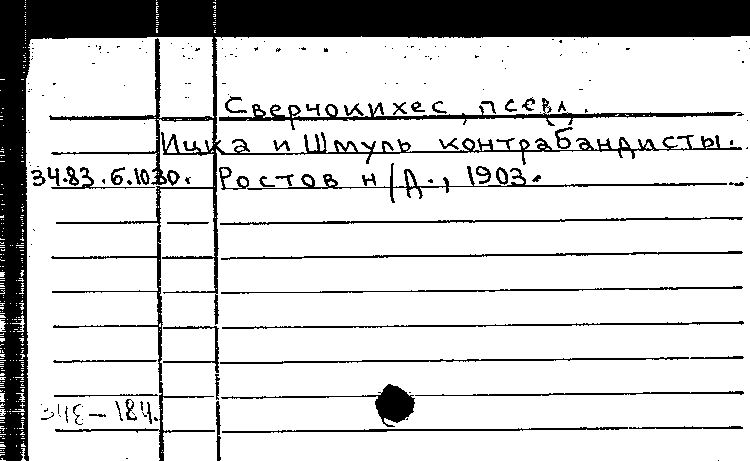 Сверчокихес, псевд.
Ицка и Шмуль контрабандисты.
34.83.6.1030. Ростов н/Д., 1903.
34Е-184.